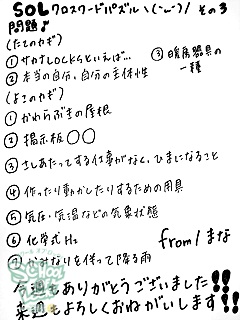 SOLクロスワードパズル\(^-^)/ その3
問題♪
(たてのカギ)
①サカナLOCKSといえば…
②本当の自分、自分の主体性
③暖房器具の一種
(よこのカギ)
①かわらぶきの屋根
②掲示板〇〇
③さしあたってする仕事がなく、ひまになること
④作ったり動かしたりするための用具
⑤気圧・気温などの気象状態
⑥化学式H₂
⑦かみなりを伴って降る雨
from/まな
今週もありがとうございました!!
来週もよろしくおねがいします!!